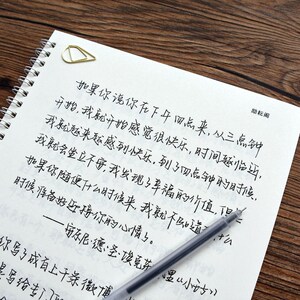 励耘阁
如果你说你在下午四点来，从三点钟
开始，我就开始感觉很快乐，时间越临近，
我就越来越感到快乐。到了四点钟的时候，
我就会坐立不安，我发现了幸福的价值，但
如果你随便什么时候来，我就不知道 什么
时候准备好迎接你的心情了。
——安东尼·德·圣·埃克苏 里《小王子》
你写了成百上千条微博